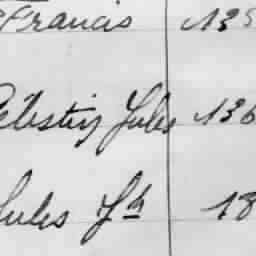 Francis 135
Célestin Jules 136
Jules Jh 18